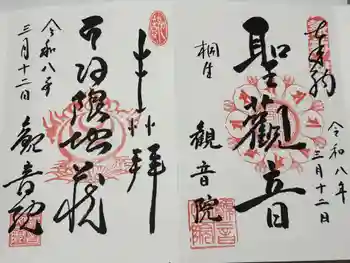 奉拝
聖觀音
桐生
観音院
令和八年
三月十二日
奉拝
日限地蔵
令和八年
三月十二日
観音院